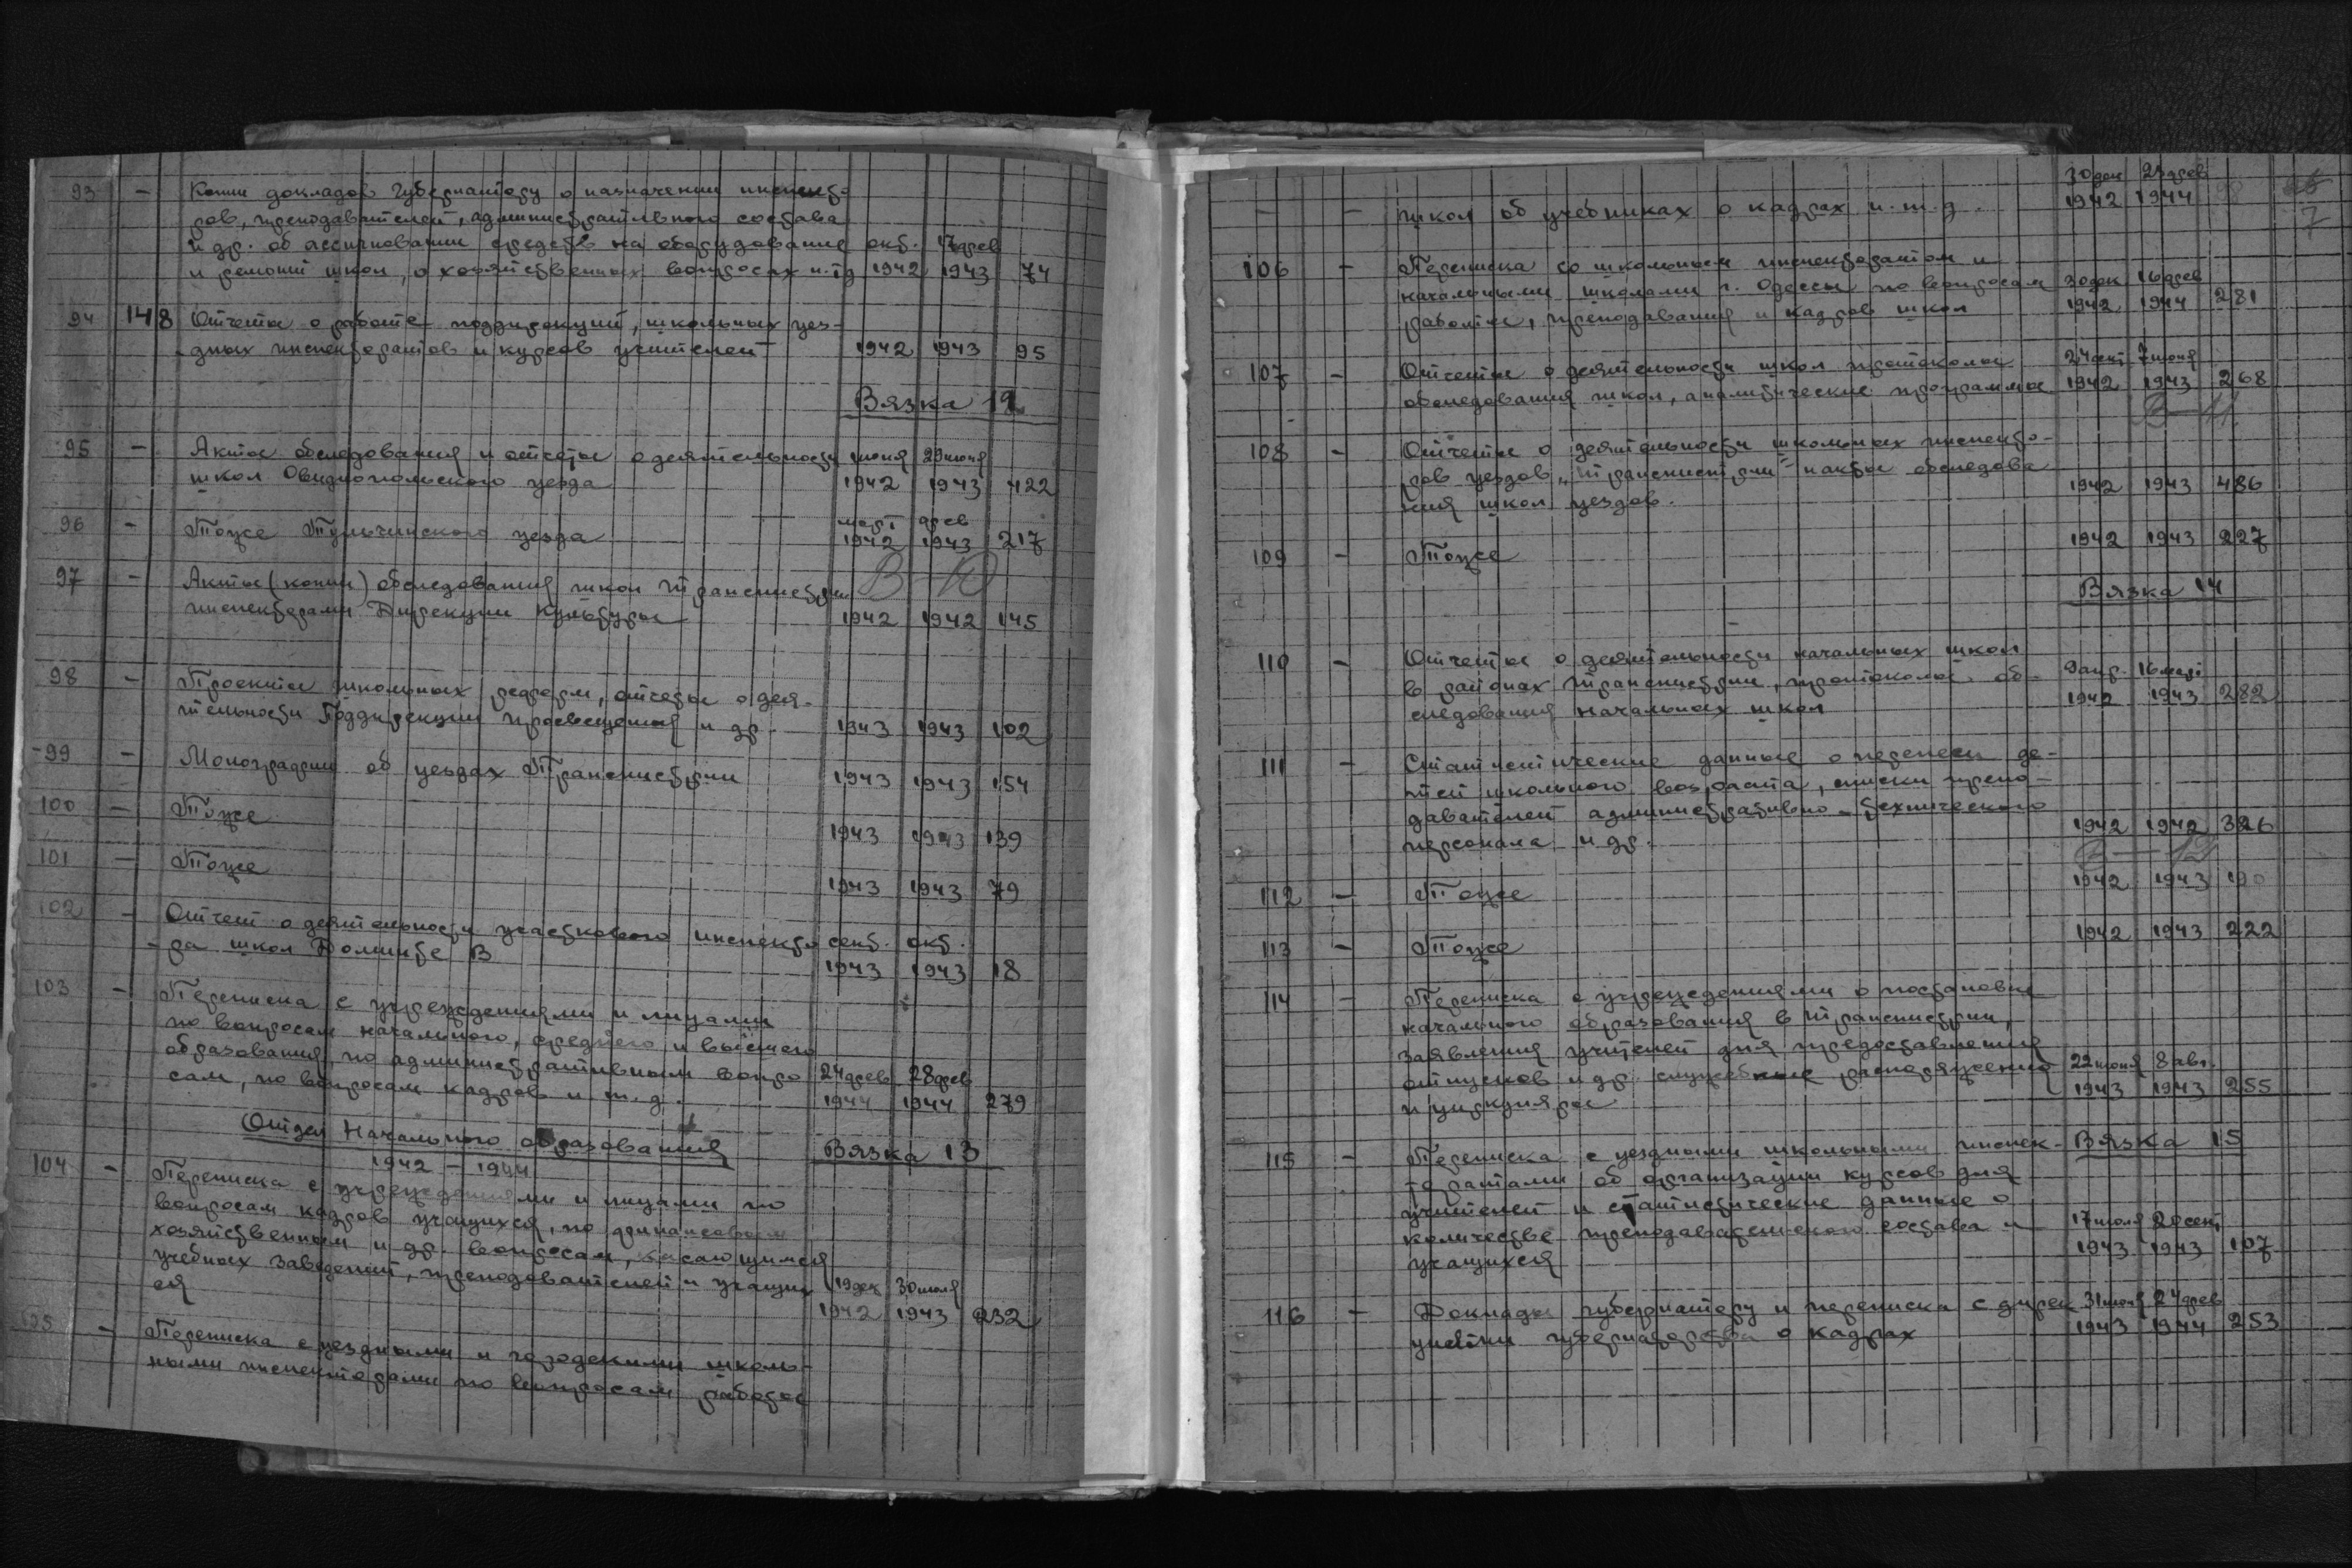 93 — Копии докладов Губернатору о назначении инспекто-
ров, преподавателей, административного состава
и др. об ассигновании средств на оборудование окт. 17 фев
и ремонт школ, о хозяйственных вопросах и. т д 1942 1943 74
94 148 Отчеты о работе поддирекций, школьных уез-
дных инспекторатов и курсов учителей 1942 1943 95
Вязка 12
95 — Акты обследования и отчеты о деятельности июня 29 июня
школ Овидиопольского уезда 1942 1943 422
март фев
96 — Тоже Тульчинского уезда 1942 1943 217
В-10
97 — Акты (копии) обследования школ Транснистрии
инспекторами Дирекции Культуры 1942 1942 145
98 — Проекты школьных реформ, отчеты о дея-
тельности Поддирекции просвещения и др. 1943 1943 102
99 — Монографии об уездах Транснистрии 1943 1943 154
100 — Тоже 1943 1943 139
101 — Тоже 1943 1943 79
102 — Отчет о деятельности участкового инспекто сент. окт.
ра школ Доминте В 1943 1943 18
103 — Переписка с учреждениями и лицами
по вопросам начального, среднего и высшего
образования, по административным вопро 24 фев 28 фев
сам, по вопросам кадров и т. д. 1944 1944 279
Отдел Начального образования Вязка 13
1942 – 1944
104 — Переписка с учреждениями и лицами по
вопросам кадров учащихся, по финансовым
хозяйственным и др. вопросам, касающимся
учебных заведений, преподавателей и учащих 19 дек 30 июля
ся 1942 1943 232
105 — Переписка с уездными и городскими школь-
ными инспекторами по вопросам работы
30 дек 23 фев
— — школ об учебниках о кадрах и. т. д. 1942 1944
7
106 — Переписка со школьным инспекторатом и
начальными школами г. Одессы по вопросам 30 дек 16 фев
работы, преподавания и кадров школ 1942 1944 281
107 — Отчеты о деятельности школ протоколы 24 сент 7 июня
обследования школ, аналитические программы 1942 1943 268
В-11
108 — Отчеты о деятельности школьных инспекто-
ров уездов „Транснистрии" и акты обследова
ния школ уездов. 1942 1943 486
109 — Тоже 1942 1943 227
Вязка 14
110 — Отчеты о деятельности начальных школ
в районах Транснистрии, протоколы об- 9 апр. 16 март
следования начальных школ 1942 1943 282
111 — Статистические данные о переписи де-
тей школьного возраста, списки препо-
давателей административно-технического
персонала и др. 1942 1942 326
В-12
112 — Тоже 1942 1943 190
113 — Тоже 1942 1943 222
114 — Переписка с учреждениями о постановке
начального образования в Транснистрии,
заявления учителей для предоставления
отпусков и др. служебные распоряжения 22 июня 8 авг.
и циркуляры 1943 1943 255
115 — Переписка с уездными школьными инспек- Вязка 15
торатами об организации курсов для
учителей и статистические данные о
количестве преподавательского состава и 17 июля 20 сент
учащихся 1943 1943 107
116 — Доклады губернатору и переписка с дирек 31 июля 24 фев
циями губернаторства о кадрах 1943 1944 253